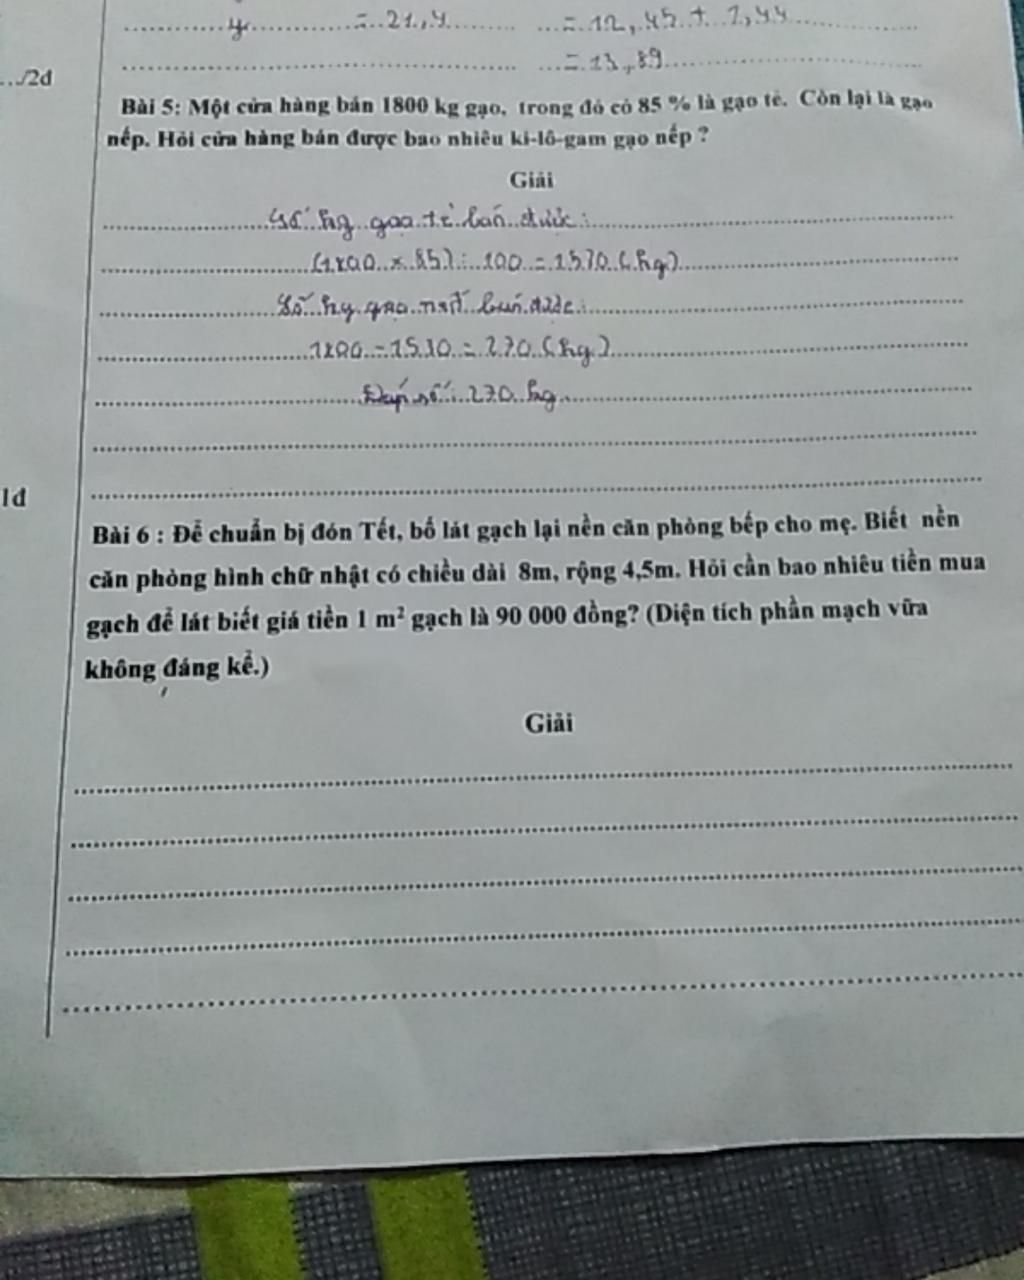 y = 21,4 = 12,45 + 1,44
= 13,89
.../2đ
Bài 5: Một cửa hàng bán 1800 kg gạo, trong đó có 85 % là gạo tẻ. Còn lại là gạo
nếp. Hỏi cửa hàng bán được bao nhiêu ki-lô-gam gạo nếp ?
Giải
Số kg gạo tẻ bán được :
(1800 × 85) : 100 = 1530 (kg)
Số kg gạo nếp bán được :
1800 - 1530 = 270 (kg)
Đáp số : 270 kg
1đ
Bài 6 : Để chuẩn bị đón Tết, bố lát gạch lại nền căn phòng bếp cho mẹ. Biết nền
căn phòng hình chữ nhật có chiều dài 8m, rộng 4,5m. Hỏi cần bao nhiêu tiền mua
gạch để lát biết giá tiền 1 m² gạch là 90 000 đồng? (Diện tích phần mạch vữa
không đáng kể.)
Giải